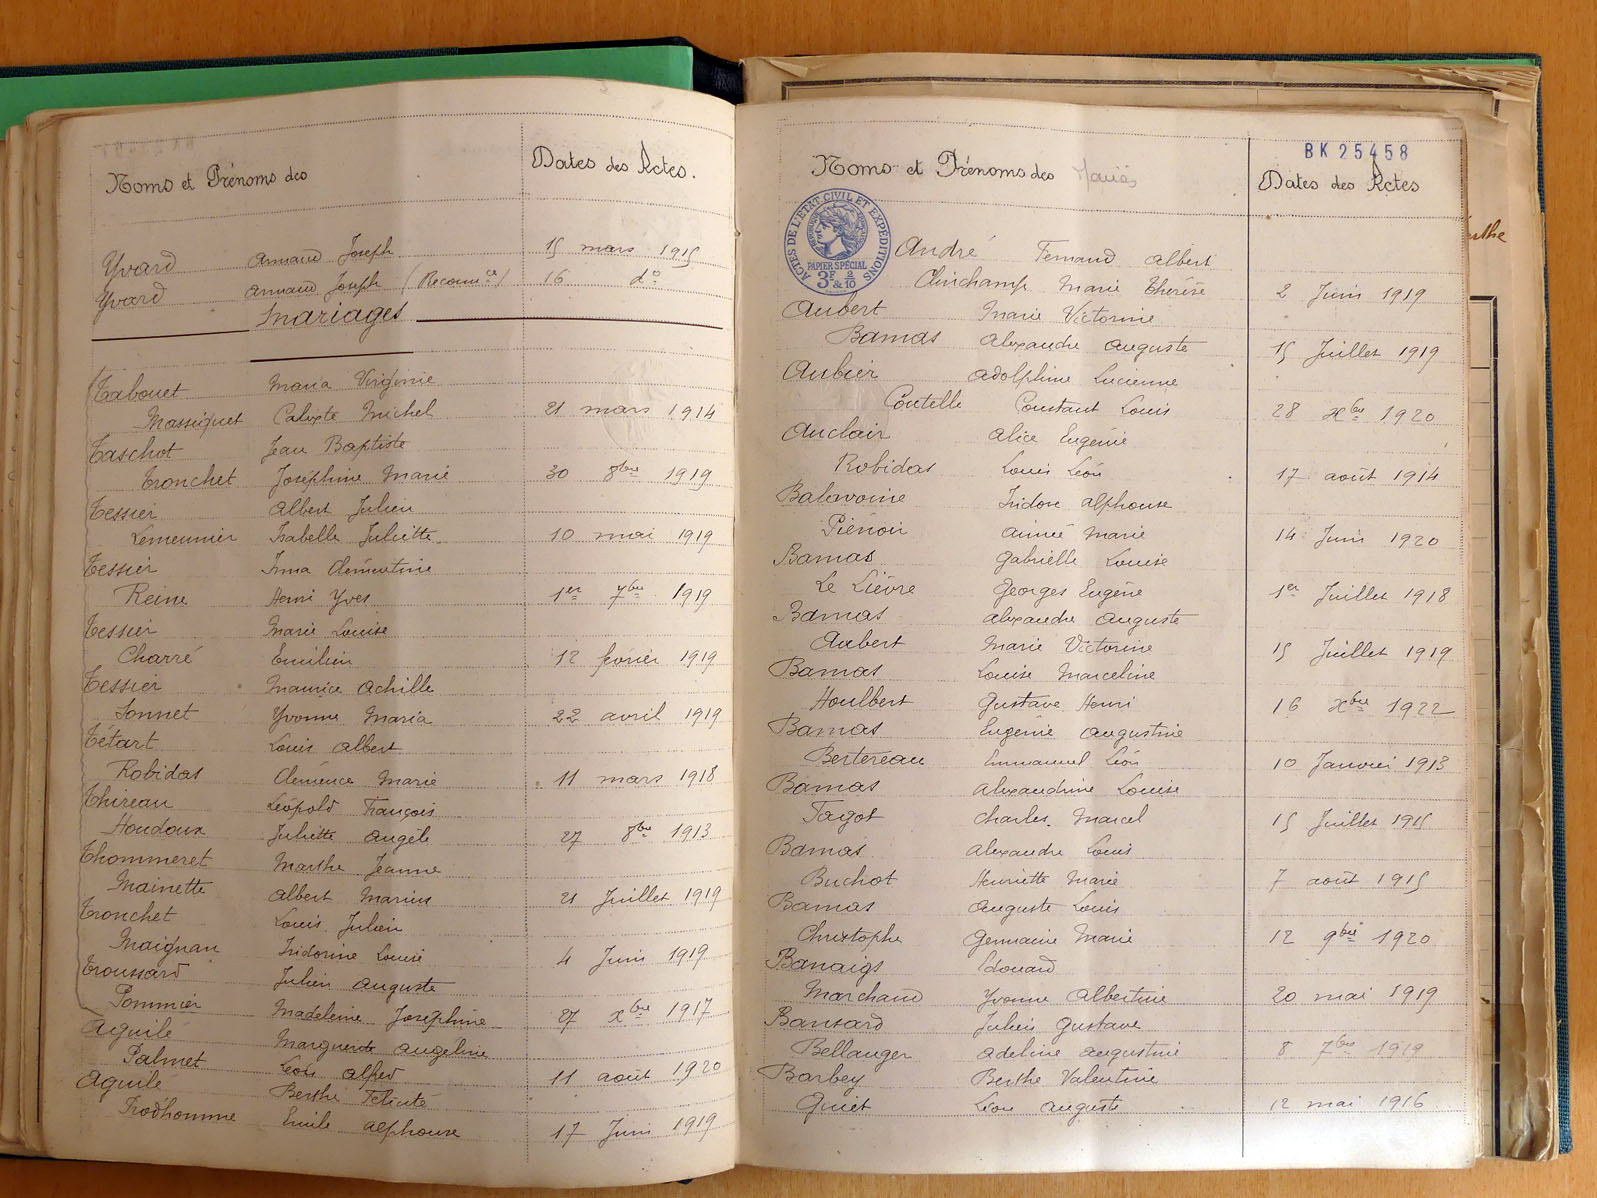 Noms et Prénoms des Dates des Actes.
Yvard Armand Joseph 15 mars 1915
Yvard Armand Joseph (Reconn.ce) 16 do
Mariages
Tabouet Maria Virginie
Massiquet Calixte Michel 21 mars 1914
Taschot Jean Baptiste
Tronchet Joséphine Marie 30 8bre 1919
Tessier Albert Julien
Lemeunier Isabelle Juliette 10 mai 1919
Tessier Irma Clémentine
Reine Henri Yves 1er 7bre 1919
Tessier Marie Louise
Charré Emilien 12 février 1919
Tessier Maurice Achille
Sonnet Yvonne Maria 22 avril 1919
Tétart Louis Albert
Robidas Clémence Marie 11 mars 1918
Thireau Léopold François
Houdoux Juliette Angèle 27 8bre 1913
Thommeret Marthe Jeanne
Mainette Albert Marius 21 Juillet 1919
Tronchet Louis Julien
Maignan Isidorine Louise 4 Juin 1919
Troussard Julien Auguste
Pommier Madeleine Joséphine 27 xbre 1917
Aguilé Marguerite Angeline
Palmet Léon Alfred 11 août 1920
Aguilé Berthe Félicité
Prod'homme Emile Alphonse 17 Juin 1919
BK 25458
Noms et Prénoms des Mariés Dates des Actes
ACTES DE L'ETAT CIVIL ET EXPEDITIONS
PAPIER SPECIAL
3F & 2/10
André Fernand Albert
Clinchamp Marie Thérèse 2 Juin 1919
Aubert Marie Victorine
Bamas Alexandre Auguste 15 Juillet 1919
Aubier Adolphine Lucienne
Coutelle Constant Louis 28 xbre 1920
Auclair Alice Eugénie
Robidas Louis Léon 17 août 1914
Balavoine Isidore Alphonse
Piénoir Aimée Marie 14 Juin 1920
Bamas Gabrielle Louise
Le Lièvre Georges Eugène 1er Juillet 1918
Bamas Alexandre Auguste
Aubert Marie Victorine 15 Juillet 1919
Bamas Louise Marceline
Houlbert Gustave Henri 16 xbre 1922
Bamas Eugénie Augustine
Bertereau Emmanuel Léon 10 Janvier 1913
Bamas Alexandrine Louise
Fagot Charles Marcel 15 Juillet 1915
Bamas Alexandre Louis
Buchot Henriette Marie 7 août 1915
Bamas Auguste Louis
Christophe Germaine Marie 12 9bre 1920
Banaigs Edouard
Marchand Yvonne Albertine 20 mai 1919
Bansard Julien Gustave
Bellanger Adeline Augustine 8 7bre 1919
Barbey Berthe Valentine
Guiet Léon Auguste 12 mai 1916